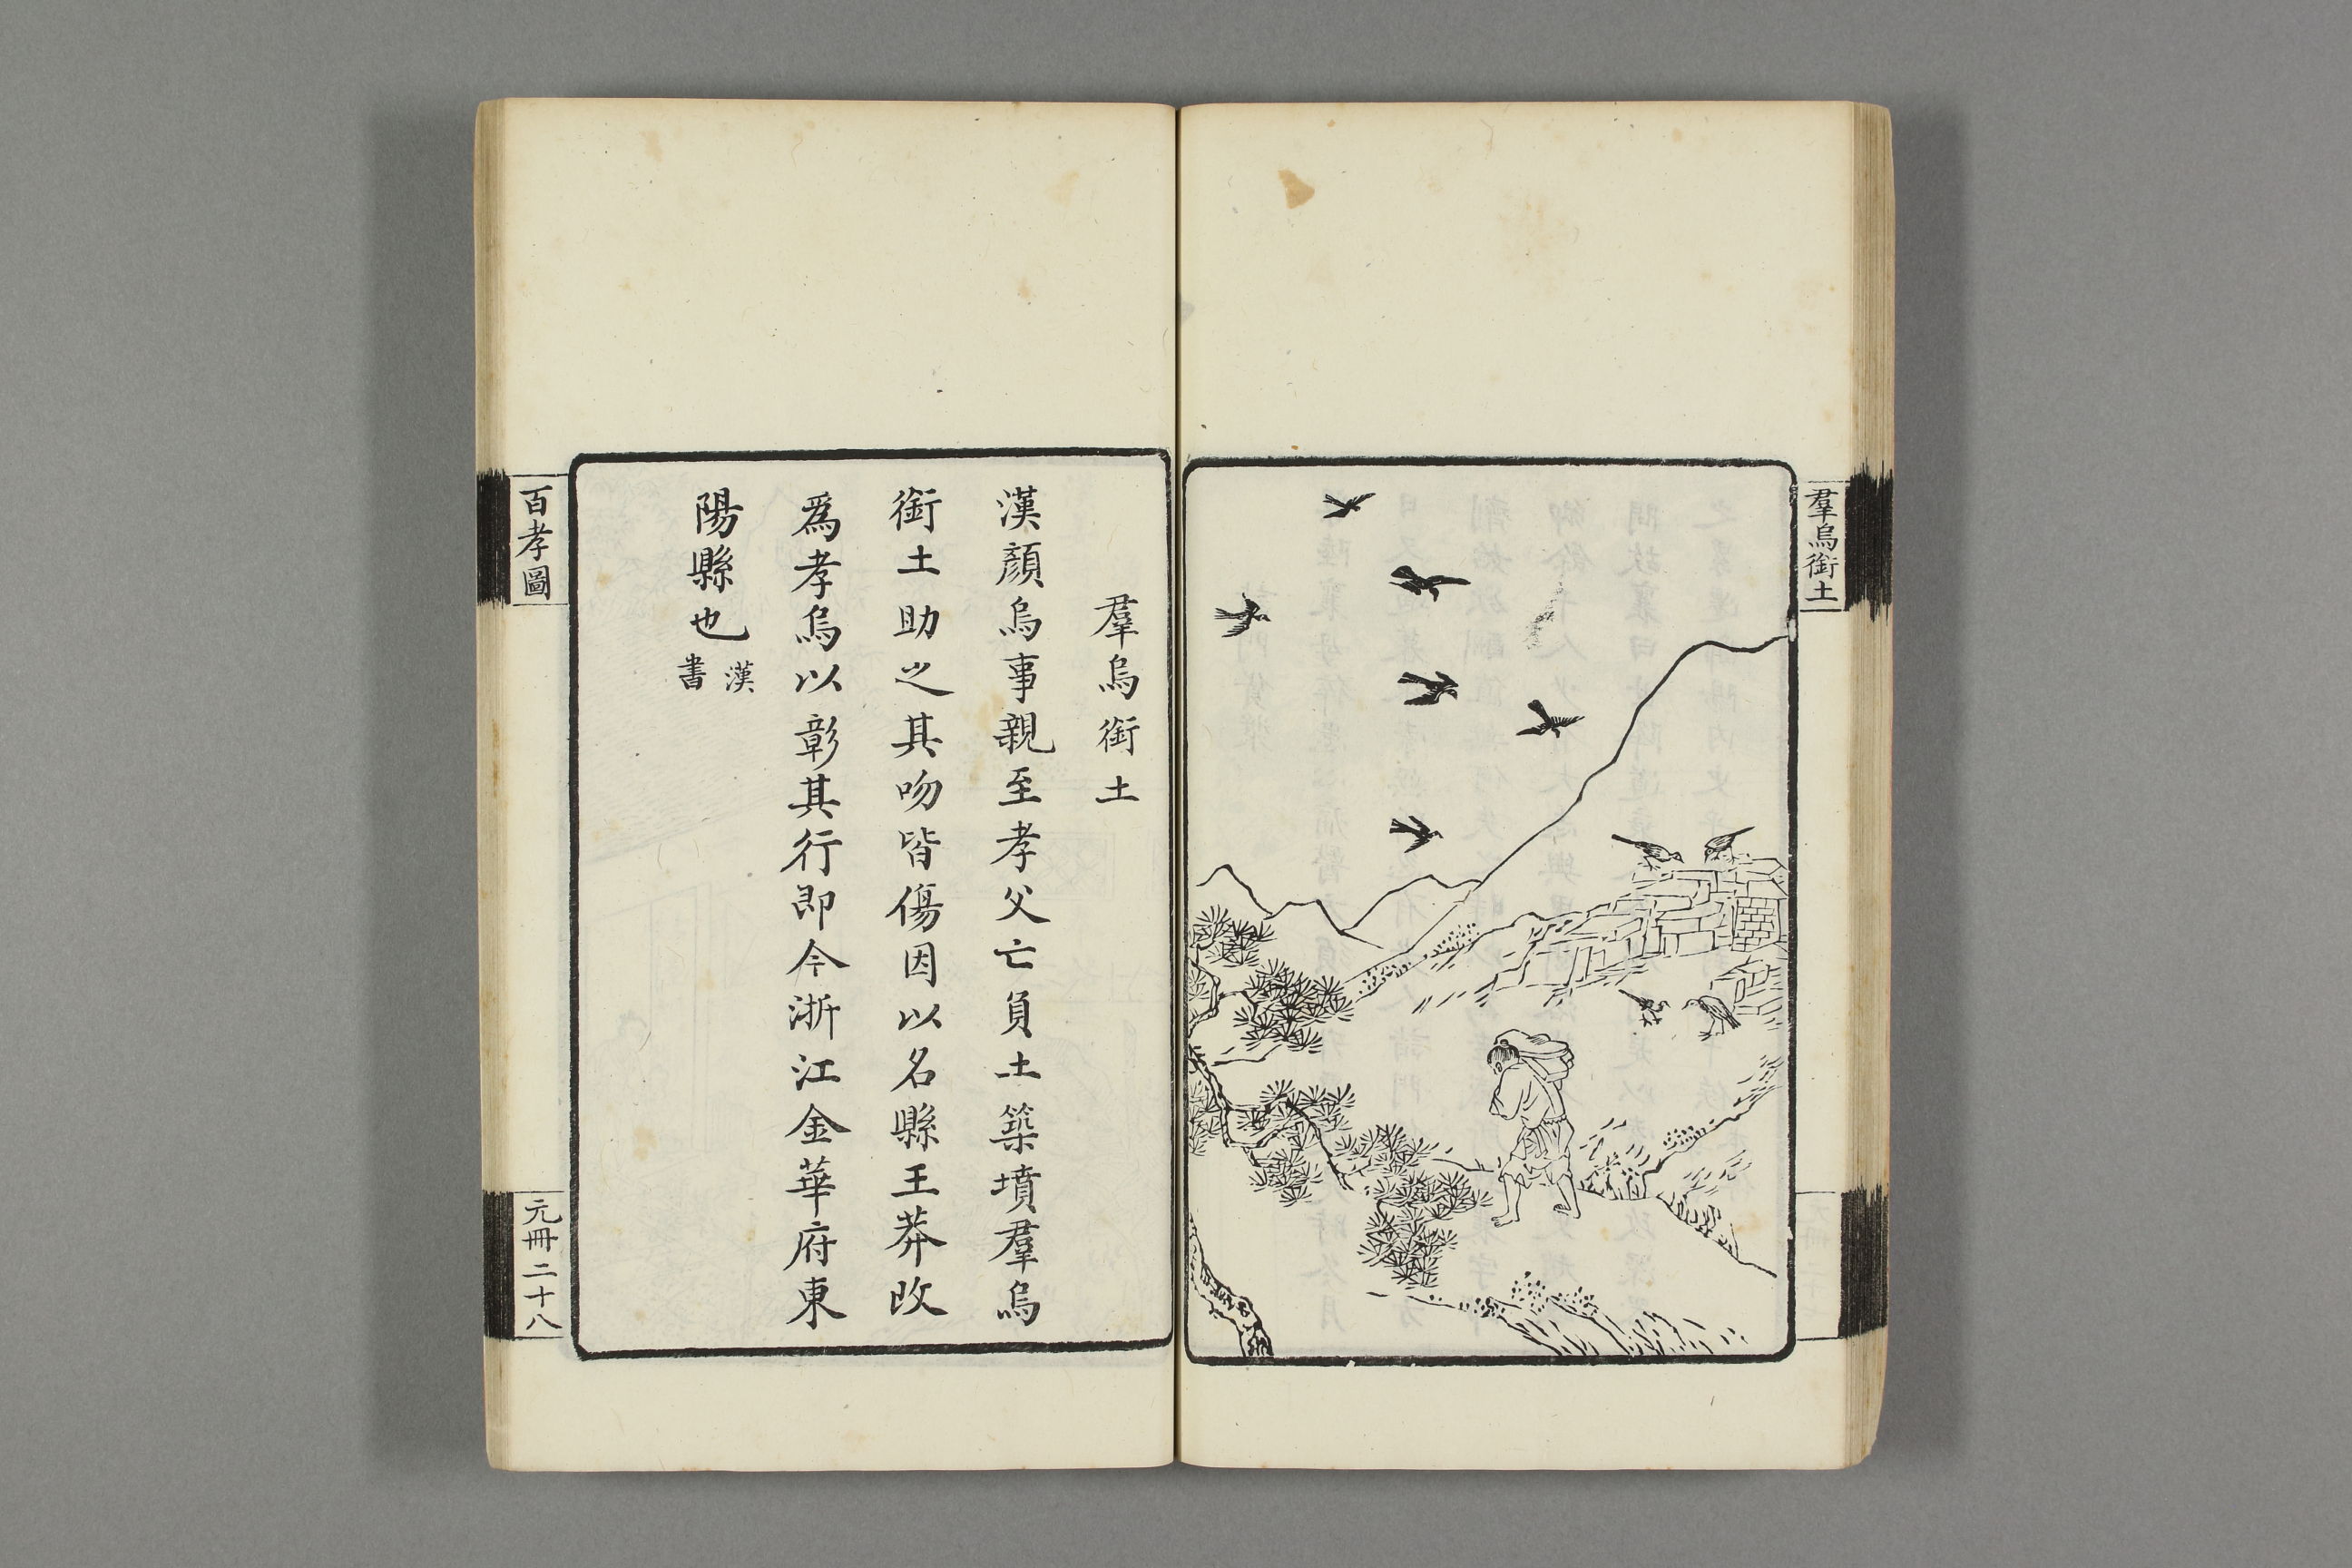 羣烏銜土
羣烏銜土
漢顏烏事親至孝父亡負土築墳羣烏
銜土助之其吻皆傷因以名縣王莽改
爲孝烏以彰其行即今浙江金華府東
陽縣也漢書
百孝圖
元冊二十八